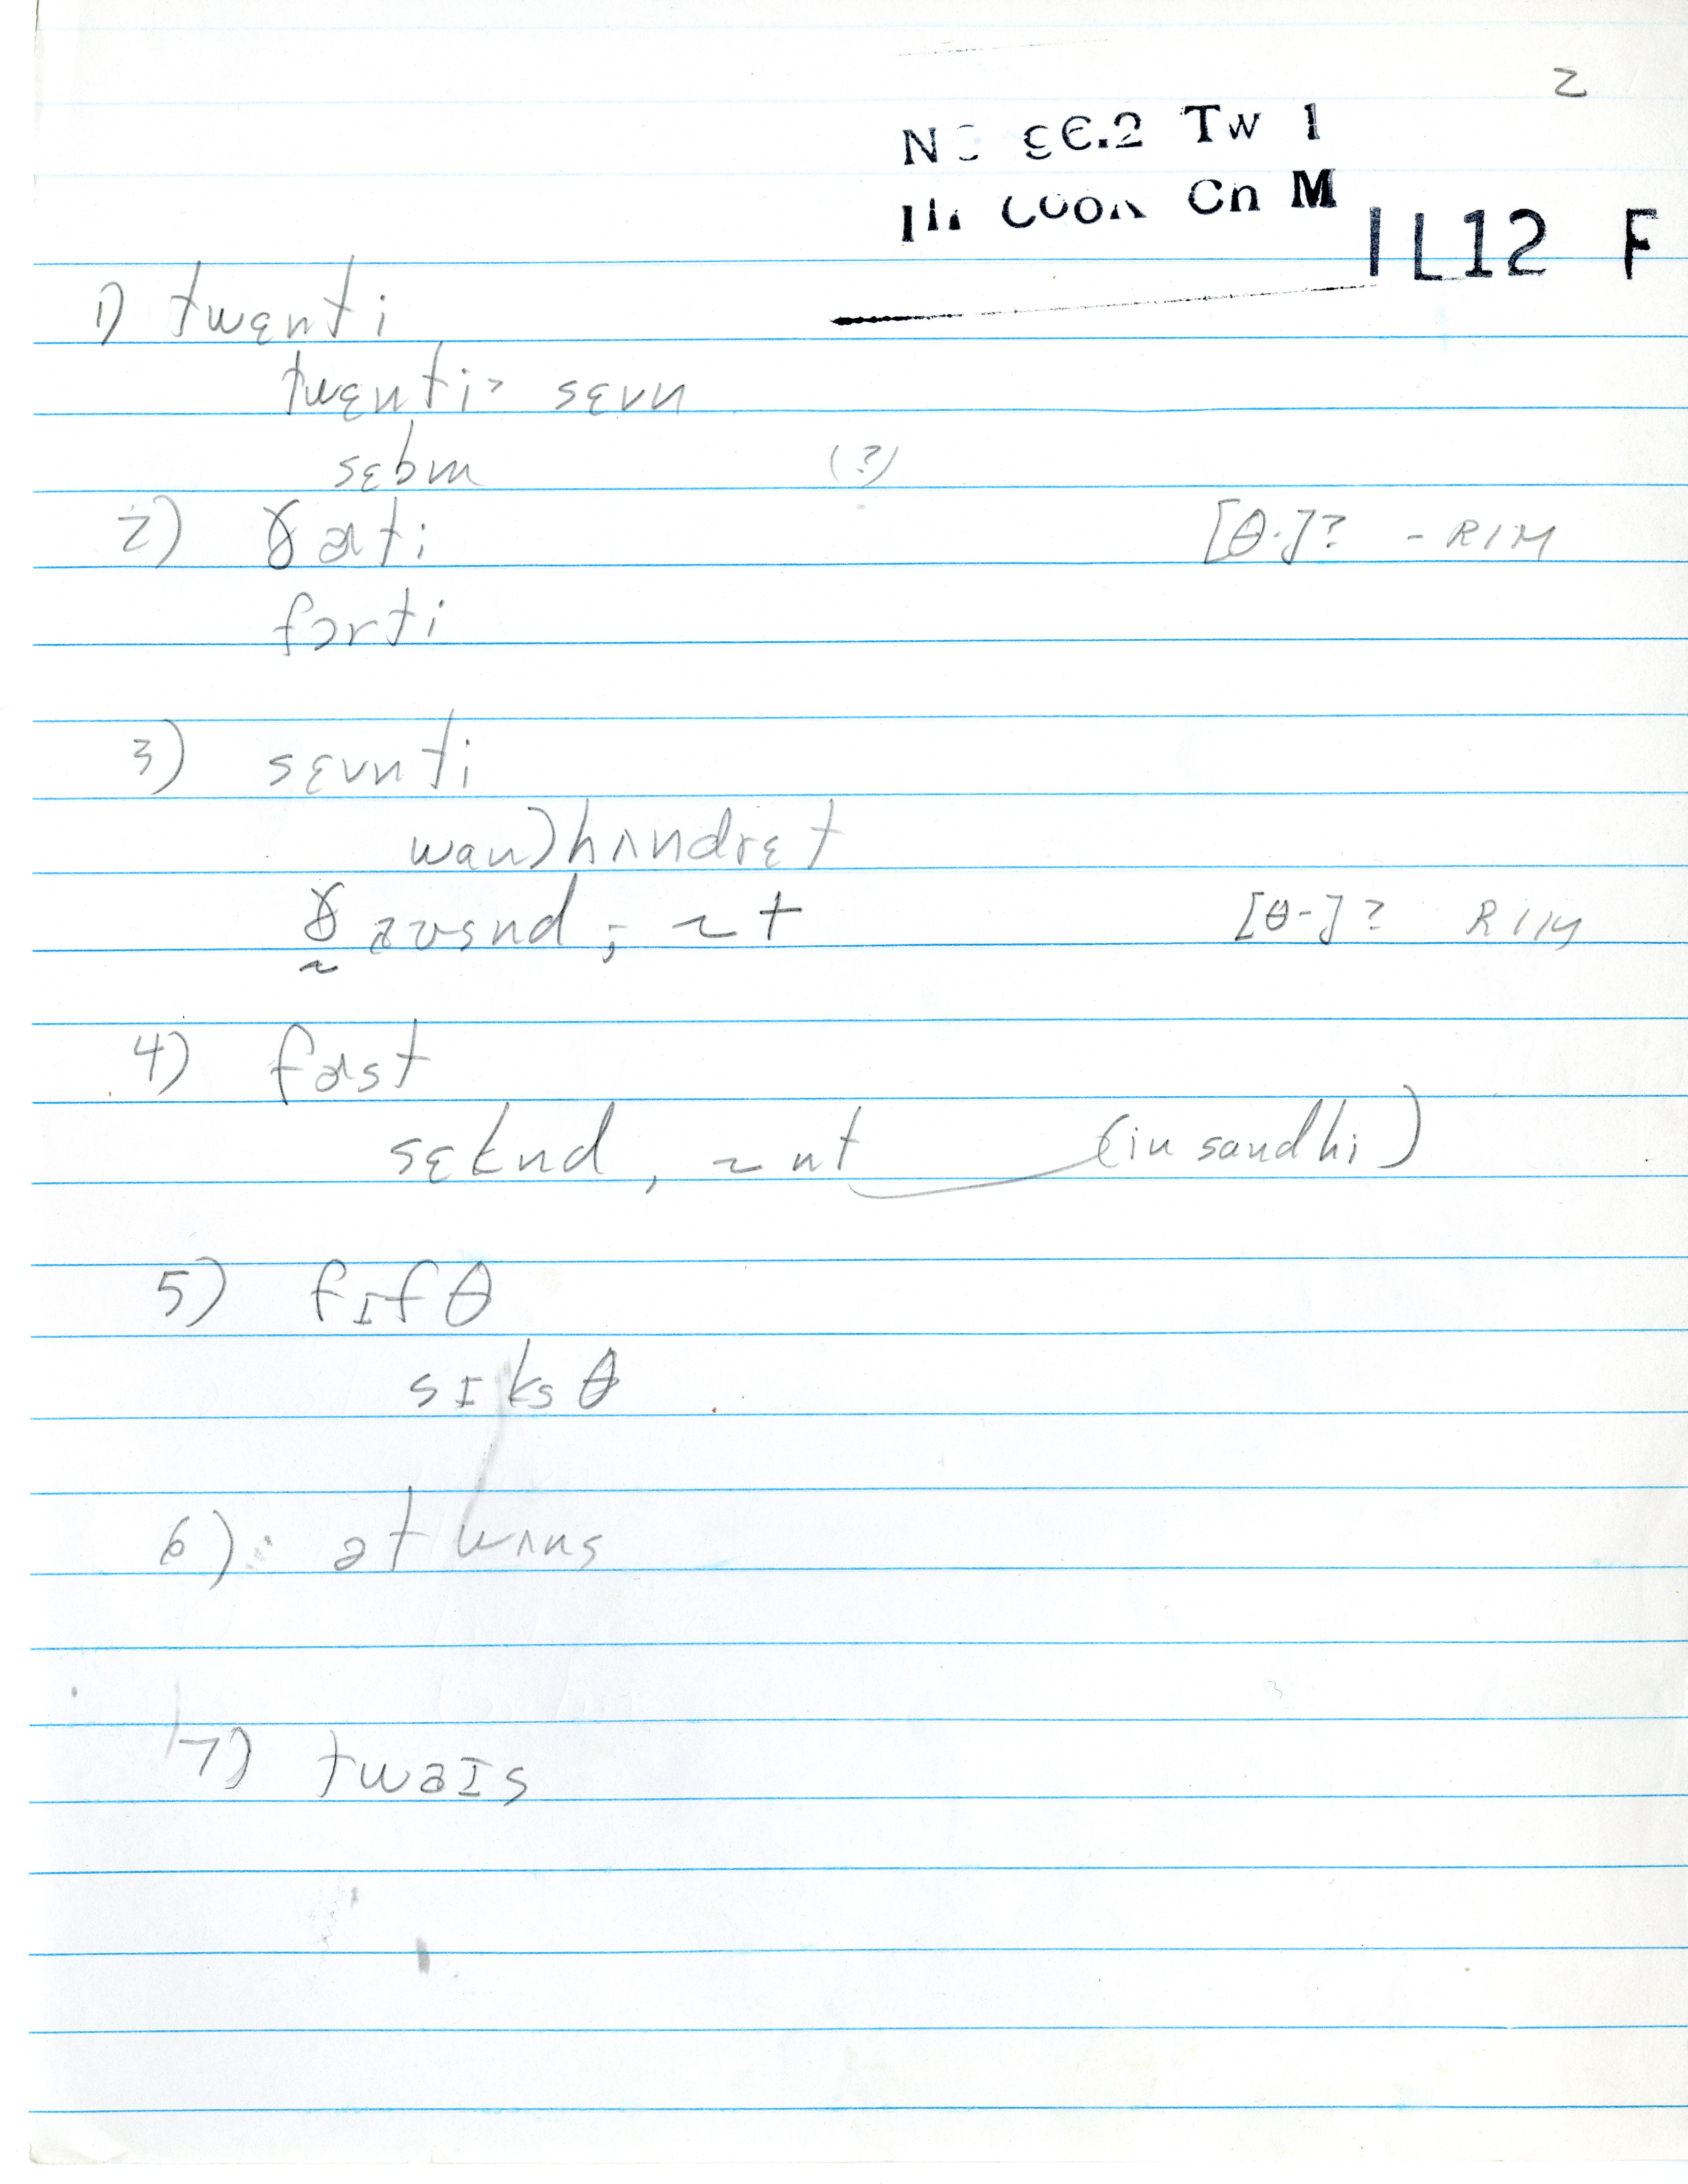 2
Tw 1
Cn M
1L12 F
1) twɛnti
twɛnti> sɛvn
sɛbm (?)
2) ɚti [θ-]? - RIM
fɔrti
3) sɛvnti
wan)hʌndrɛt
aʊsnd; ~t [θ-]? RIM
4) fɚst
sɛknd, ~nt (in sandhi)
5) fɪfθ
sɪksθ
6) ət wʌns
7) twaɪs